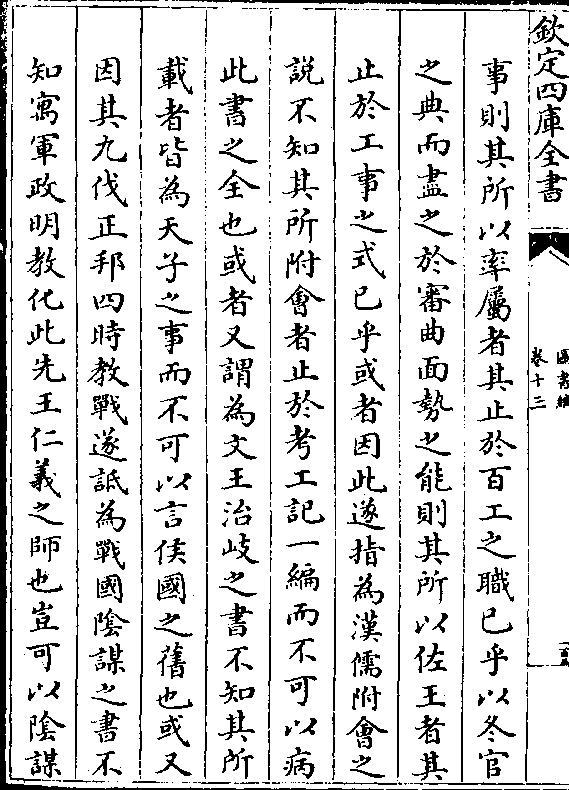 欽定四庫全書
圖書編
卷十三
事則其所以率屬者其止於百工之職已乎以冬官
之典而盡之於審曲面勢之能則其所以佐王者其
止於工事之式已乎或者因此遂指為漢儒附會之
說不知其所附會者止於考工記一編而不可以病
此書之全也或者又謂為文王治岐之書不知其所
載者皆為天子之事而不可以言侯國之舊也或又
因其九伐正邦四時教戰遂詆為戰國陰謀之書不
知寓軍政明教化此先王仁義之師也豈可以陰謀